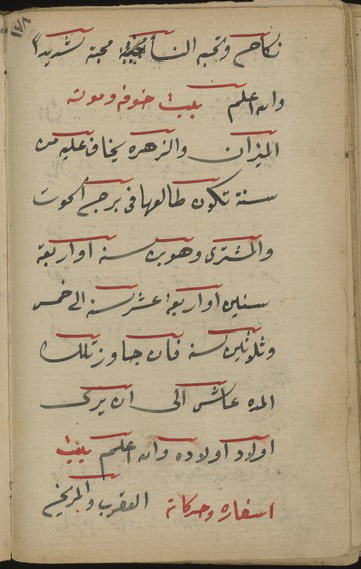 ١٧٨
نكاحهم وتحبه النسا محبة شديدا
والله اعلم بيت خوفه وموته
الميزان والزهره يخاف عليه من
سنة تكون طالعها في برج الحوت
والمشترى وهو بن سنة او اربعة
سنين او اربعة عشر سنة الى خمس
وثلاثين سنة فان جاوز تلك
المده عاش الى ان يرى
اولاد اولاده والله اعلم بيت
اسفاره وحركاته العقرب والمريخ